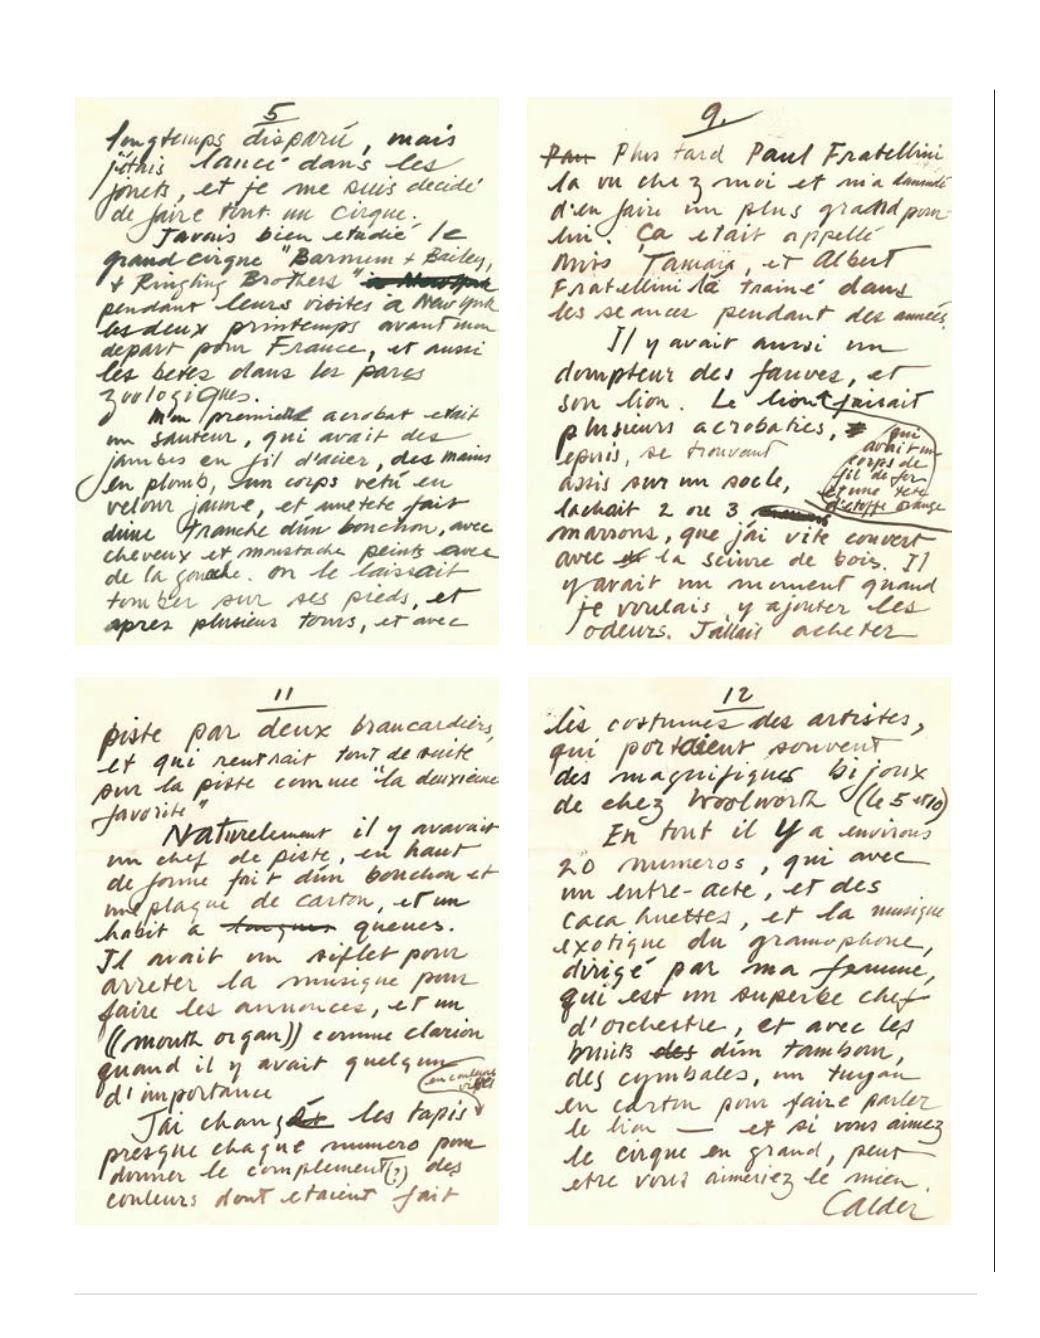 5
longtemps disparu, mais
j'étais lancé dans les
jouets, et je me suis decidé
de faire tout un cirque.
J'avais bien etudié le
grand cirque "Barnum + Bailey,
+ Ringling Brothers" à New York
pendant leurs visites à New York
les deux printemps avant mon
depart pour France, et aussi
les betes dans les parcs
zoologiques.
Mon premier acrobat etait
un sauteur, qui avait des
jambes en fil d'acier, des mains
en plomb, un corps vetu en
velour jaune, et une tete fait
d'une tranche d'un bouchon, avec
cheveux et moustache peints avec
de la gouache. on le laissait
tomber sur ses pieds, et
apres plusieurs tours, et avec
9.
Pau Plus tard Paul Fratellini
la vu chez moi et m'a demandé
d'en faire un plus grand pour
lui. Ça etait appellé
Miss Tamara, et Albert
Fratellini la trainé dans
les seances pendant des années.
Il y avait aussi un
dompteur des fauves, et
son lion. Le lion faisait
plusieurs acrobaties,
qui
avait un
corps de
fil de fer
et une tete
d'etoffe orange
epuis, se trouvant
assis sur un socle,
lachait 2 ore 3
marrons, que j'ai vite couvert
avec la sciure de bois. Il
y avait un moment quand
je voulais y ajouter les
odeurs. J'allais acheter
11
piste par deux brancardiers,
et qui rentrait tout de suite
sur la piste comme "la deuxieme
favorite"
Naturelement il y avavait
un chef de piste, en haut
de forme fait d'un bouchon et
une plaque de carton, et un
habit a longues queues.
Il avait un siflet pour
arreter la musique pour
faire les annonces, et un
((mouth organ)) comme clarion
quand il y avait quelqun
d'importance
en couleurs
J'ai changé les tapis
presque chaque numero pour
donner le complement(?) des
couleurs dont etaient fait
12
les costumes des artistes,
qui portaient souvent
des magnifiques bijoux
de chez Woolworth (le 5 et 10)
En tout il y a environs
20 numeros, qui avec
un entre-acte, et des
caca huettes, et la musique
exotique du gramophone,
dirigé par ma femme,
qui est un superbe chef
d'orchestre, et avec les
bruits des d'un tambour,
des cymbales, un tuyau
en carton pour faire parler
le lion — et si vous aimez
le cirque en grand, peut
etre vous aimeriez le mien.
Calder